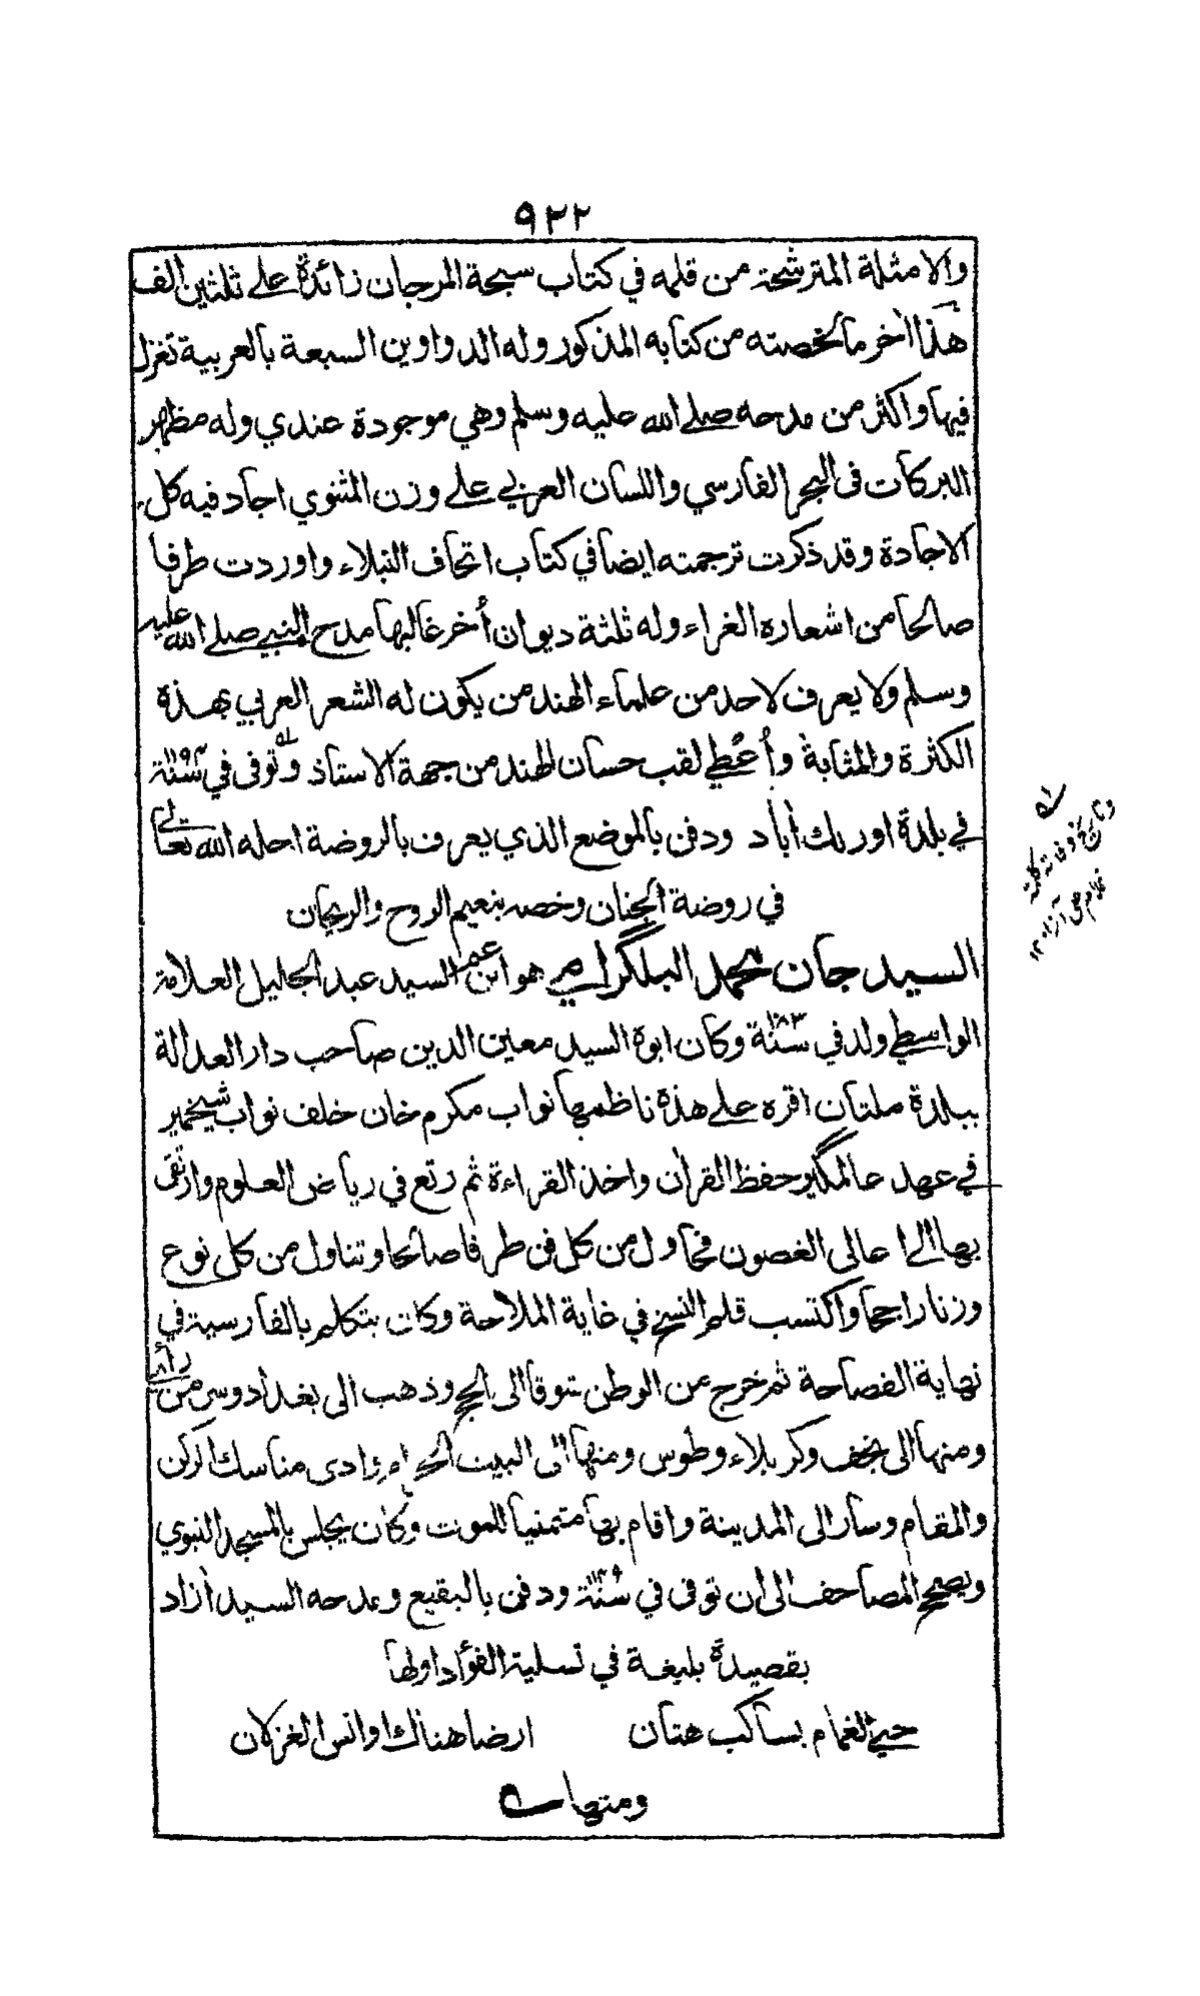 ٩٢٢
والامثلة المترشحة من قلمه في كتاب سبحة المرجان زائدة على ثلثين الف
هذا اخر ما لخصته من كتابه المذكور وله الدواوين السبعة بالعربية تغزل
فيها واكثر من مدحه صلى الله عليه وسلم وهي موجودة عندي وله مظهر
البركات في البحر الفارسي واللسان العربي على وزن المثنوي اجاد فيه كل
الاجادة وقد ذكرت ترجمته ايضا في كتاب اتحاف النبلاء واوردت طرفا
صالحا من اشعاره الغراء وله ثلثة ديوان أخر غالبها مدح النبي صلى الله عليه
وسلم ولا يعرف لاحد من علماء الهند من يكون له الشعر العربي بهذة
الكثرة والمثابة وأُعُطِي لقب حسان الهند من جهة الاستاذ وتوفى في سنة
في بلدة اورنك أباد ودفن بالموضع الذي يعرف بالروضة احله الله تعالى
في روضة الجنان وخصه بنعيم الروح والريحان
السيد جان محمد البلگرامي هو ابن عم السيد عبد الجليل العلامة
الواسطي ولد في سنة ١٠٨٣ وكان ابوه السيد معين الدين صاحب دار العدالة
ببلدة ملتان اقره على هذة ناظمها نواب مكرم خان خلف نواب شيخمير
في عهد عالمگير حفظ القرأن واخذ القراءة ثم رتع في رياض العلوم وارتقى
بها الى اعالى الغصون فحاول من كل فن طرفا صالحا وتناول من كل نوع
وزنا راجحا واكتسب قلم النسخ في غاية الملاحة وكان يتكلم بالفارسية في
نهاية الفصاحة ثم خرج من الوطن شوقا الى الحج وذهب الى بغداد وسر من رأى
ومنها الى نجف وكربلاء وطوس ومنها الى البيت الحرام وادى مناسك الركن
والمقام وسار الى المدينة واقام بها متمنيا للموت وكان يجلس بالمسجد النبوي
ويصحح المصاحف الى ان توفى في سنة ١١٤٩ ودفن بالبقيع ومدحه السيد أزاد
بقصيدة بليغة في تسلية الفؤاد اولها
حيى الغمام بساكب هتان ارضا هناك اوانس الغزلان
ومنها
وتاريخ وفاته كلمة
غلام علي آزاد ١٢